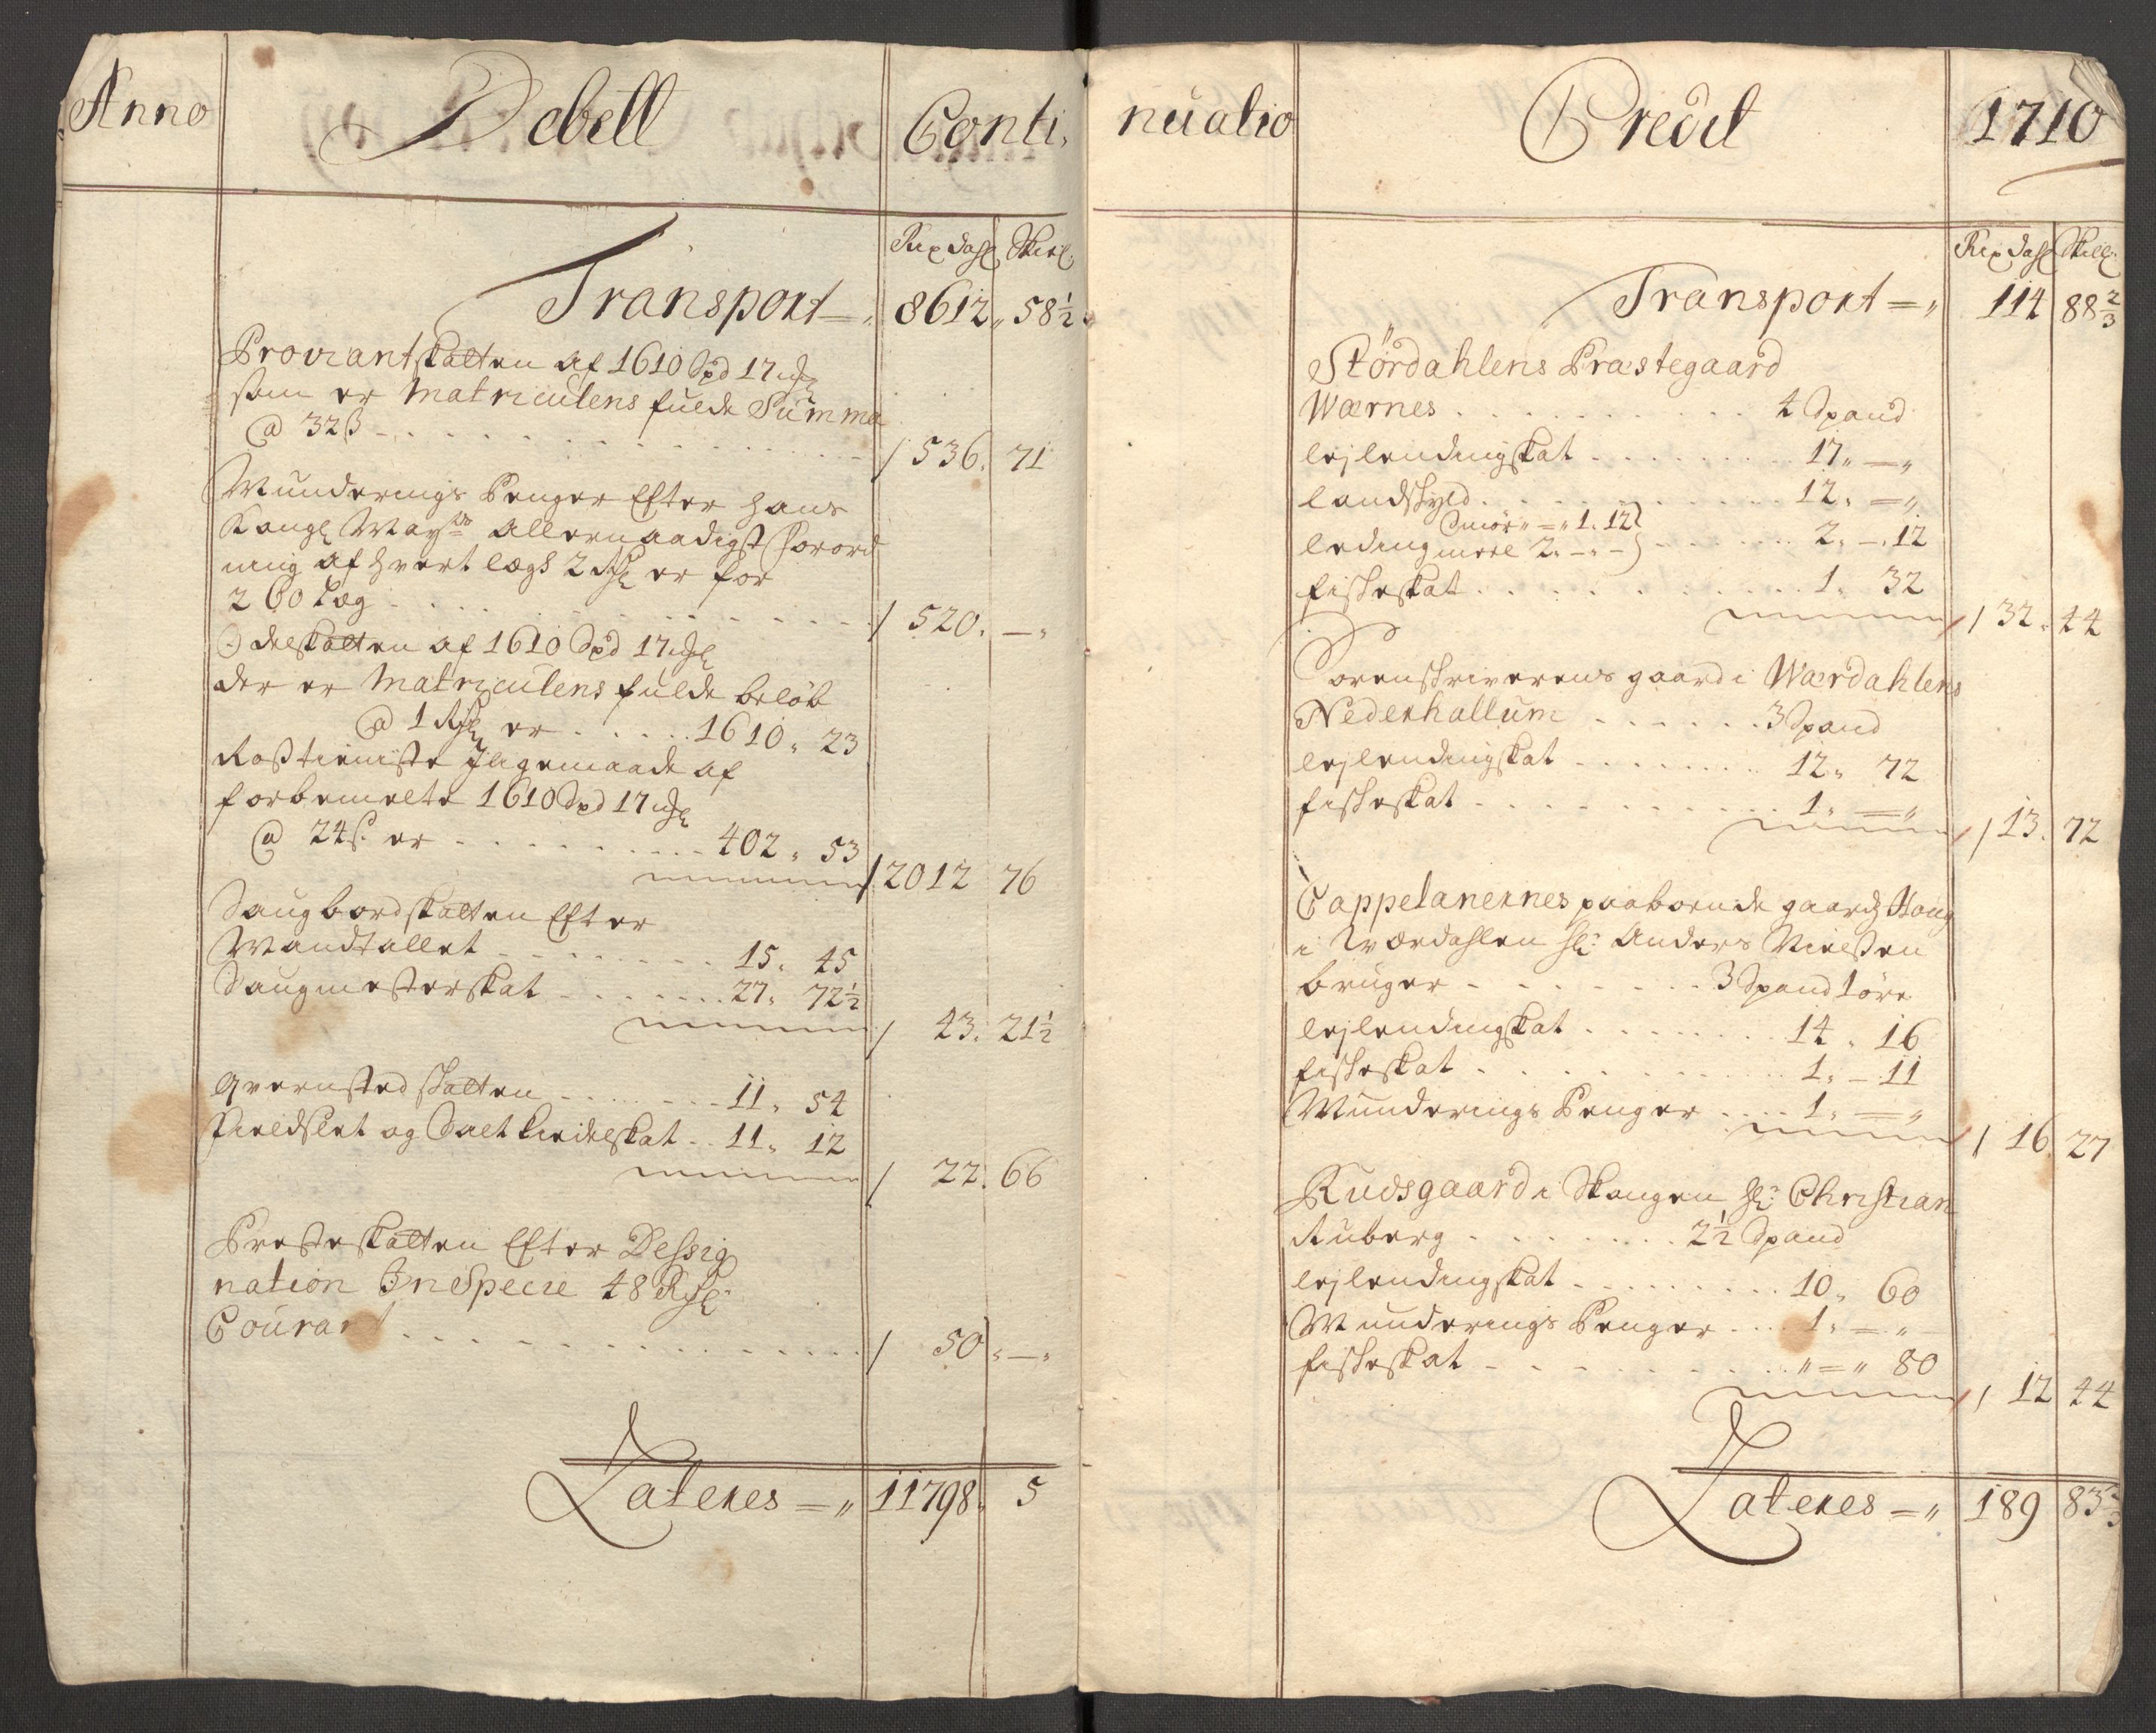 Anno Debett Conti,
Rixdahl Skill
Transport = 8612 58½
Proviantskatten af 1610 Spd 17 mkl
som er Matriculens fulde Summa
@ 32 ß - 536. 71
Munderings Penger Efter Hans
Kongl Mayts Allernaadigst forord
ning af hvert lægs 2 Rdl er for
260 Læg 520. -
Odelskatten af 1610 Spd 17 mkl
der er Matriculens fulde beløb
@ 1 Rdl er 1610. 23
Rosstieniste Jligemaade af
forbemelte 1610 Spd 17 mkl
@ 24 ß er 402. 53
2012 76
Saugbordskatten Efter
Mandtallet 15. 45
Saugmesterskat 27. 72½
43. 21½
Qvernsted skatten 11. 54
Fieldslet og Saltkiedelskat 11. 12
22. 66
Presteskatten Efter Dessig
nation In Specie 48 Rdl
Courant 50 -
Lateres = 11798. 5
nuatio Credit 1710
Rixdahl Skill
Transport = 114 88⅔
Stördahlens Præstegaard
Wærnes 4 Spand
lejlendingskat 17. -
landskyld 12. =
Smör = 1. 12
leding meel 2. - - 2. - 12
fiskeskat 1. 32
32. 44
Sorenskriverens gaard i Wærdahlens
Nederhallum 3 Spand
lejlendingskat 12. 72
fiskeskat 1. =
13. 72
Cappelanernes paaboende gaard Haug
i Wærdahlen Hr: Anders Nielsen
bruger 3 Spand 1 öre
lejlendingskat 14. 16
fiskeskat 1. - 11
Munderings Penger 1. =
16. 27
Rudsgaard i Skongen Hr: Christian
Ruberg 2½ Spand
lejlendingskat 10. 60
Munderings Penger 1. =
fiskeskat = 80
12 44
Lateres = 189 83⅔